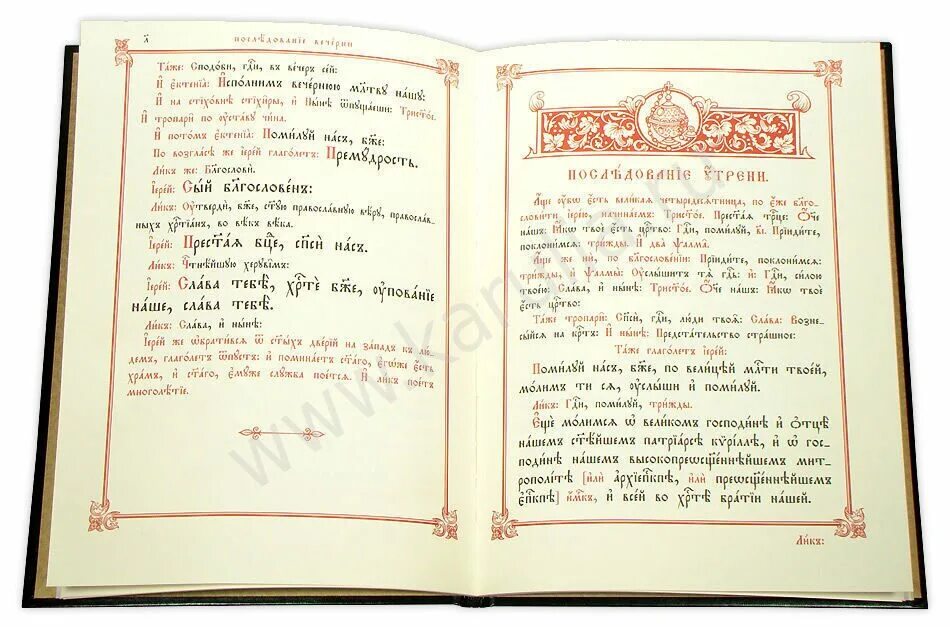 л҃
послѣ́дованїе вече́рни
Та́же: Сподо́би, гдⷭ҇и, въ ве́черъ се́й:
И҆ є҆ктенїа̀: И҆спо́лнимъ вече́рнюю мл҃тву на́шу:
И҆ на стїхо́внѣ стїхи̑ры, и҆ Ны́нѣ ѿпꙋща́еши: Трист҃о́е.
И҆ тропарѝ по ᲂу҆ста́вꙋ чи́на.
И҆ пото́мъ є҆ктенїа̀: Поми́лꙋй на́съ, бж҃е:
По во́згласѣ же і҆ере́й глаго́летъ: Премꙋ́дрость.
Ли́къ же: Благословѝ.
І҆ере́й: Сы́й блг҃ослове́нъ:
Ли́къ: Оу҆твердѝ, бж҃е, ст҃ꙋ́ю правосла́внꙋю вѣ́рꙋ, правосла́в-
ныхъ хрⷭ҇тїа́нъ, во вѣ́къ вѣ́ка.
І҆ере́й: Прест҃а́ѧ бцⷣе, сп҃сѝ на́съ.
Ли́къ: Чтⷭ҇нѣ́йшꙋю херꙋві̑мъ:
І҆ере́й: Сла́ва тебѣ̀, хрⷭ҇тѐ бж҃е, ᲂу҆пова́нїе
на́ше, сла́ва тебѣ̀.
Ли́къ: Сла́ва, и҆ ны́нѣ:
І҆ере́й же ѡ҆брати́всѧ ѿ ст҃ы́хъ две́рїй на за́падъ къ лю́-
демъ, глаго́летъ ѿпꙋ́стъ: и҆ помина́етъ ст҃а́го, є҆гѡ́же є҆́сть
хра́мъ, и҆ ст҃а́го, є҆мꙋ́же слꙋ́жба пое́тсѧ. И҆ ли́къ пое́тъ
многолѣ́тїе.
ПОСЛѢ́ДОВАНЇЕ ОУ҆́ТРЕНИ.
А҆́ще ᲂу҆́бѡ є҆́сть вели́каѧ четыредесѧ́тница, по є҆́же благо-
слови́ти і҆ере́ю, начина́емъ: Трист҃о́е. Прест҃а́ѧ трⷪ҇це: Ѻ҆́ч҃е
на́шъ: Ꙗ҆́кѡ твоѐ є҆́сть црⷭ҇тво: Гдⷭ҇и, поми́лꙋй, в҃і. Прїиди́те,
поклони́мсѧ: три́жды. И҆ два̀ ѱалма̑.
А҆́ще же нѝ, по благослове́нїи: Прїиди́те, поклони́мсѧ:
три́жды, и҆ ѱалмы̀: Оу҆слы́шитъ тѧ̀ гдⷭ҇ь: и҆: Гдⷭ҇и, си́лою
твое́ю: Сла́ва, и҆ ны́нѣ: Трист҃о́е. Ѻ҆́ч҃е на́шъ: Ꙗ҆́кѡ твоѐ
є҆́сть црⷭ҇тво:
Та́же тропарѝ: Сп҃сѝ, гдⷭ҇и, лю́ди твоѧ̑: Сла́ва: Вознес-
ы́йсѧ на крⷭ҇тъ: И҆ ны́нѣ: Предста́тельство стра́шное:
Та́же глаго́летъ і҆ере́й:
Поми́лꙋй на́съ, бж҃е, по вели́цѣй мл҃ти твое́й,
мо́лимъ ти сѧ, ᲂу҆слы́ши и҆ поми́лꙋй.
Ли́къ: Гдⷭ҇и, поми́лꙋй, три́жды.
Є҆щѐ мо́лимсѧ ѡ҆ вели́комъ господи́нѣ и҆ ѻ҆тцѣ̀
на́шемъ ст҃ѣ́йшемъ патрїа́рсѣ кѷрі́ллѣ, и҆ ѡ҆ гос-
поди́нѣ на́шемъ высокопреѡсщ҃е́ннѣйшемъ мит-
рополі́тѣ [и҆лѝ а҆рхїепⷭ҇кпѣ, и҆лѝ преѡсщ҃е́ннѣйшемъ
є҆пⷭ҇кпѣ] и҆́мⷬ҇къ, и҆ все́й во хрⷭ҇тѣ̀ бра́тїи на́шей.
Ли́къ:
www.karuna.ru